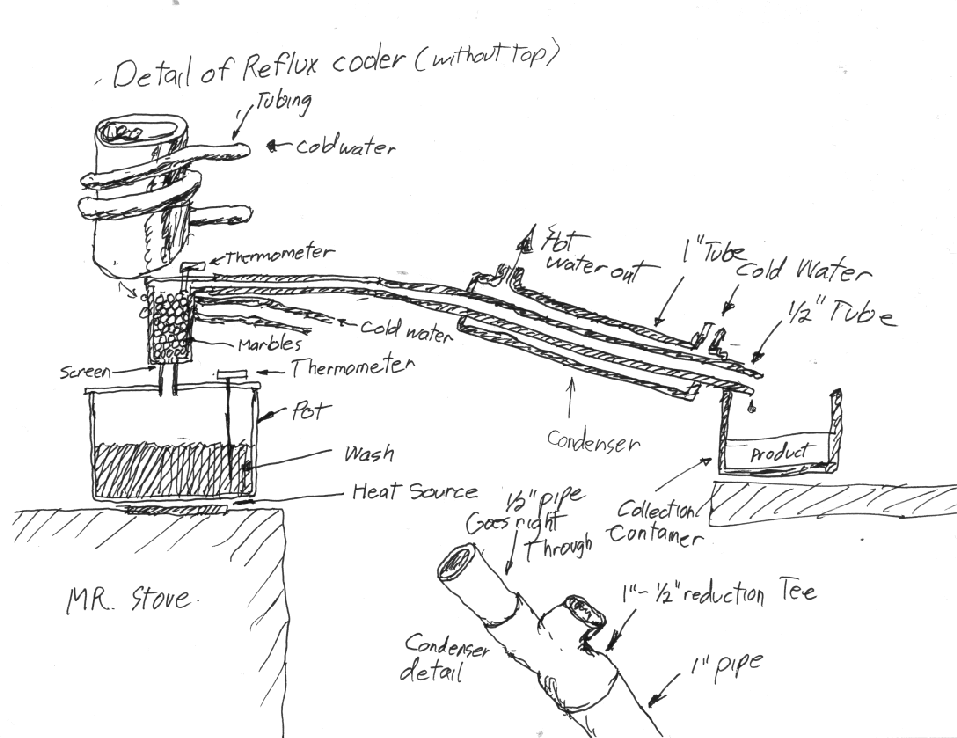 Detail of Reflux cooler (without top)
Tubing
Cold water
Thermometer
Hot
water out
1" Tube
Cold Water
1/2" Tube
Cold water
Marbles
Screen
Thermometer
Pot
Condenser
Product
Wash
Heat Source
1/2" pipe
Goes right
Through
Collection
Container
MR. Stove.
1"-1/2" reduction Tee
Condenser
detail
1" pipe